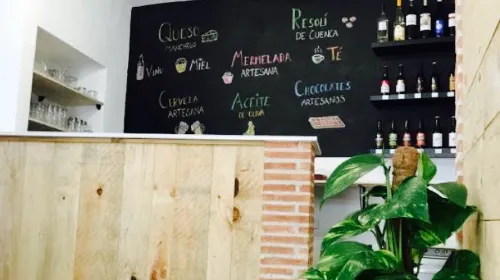 QUESO
MANCHEGO
RESOLÍ
DE CUENCA
VINO
MIEL
MERMELADA
ARTESANA
TÉ
CERVEZA
ARTESANA
ACEITE
DE OLIVA
CHOCOLATES
ARTESANOS